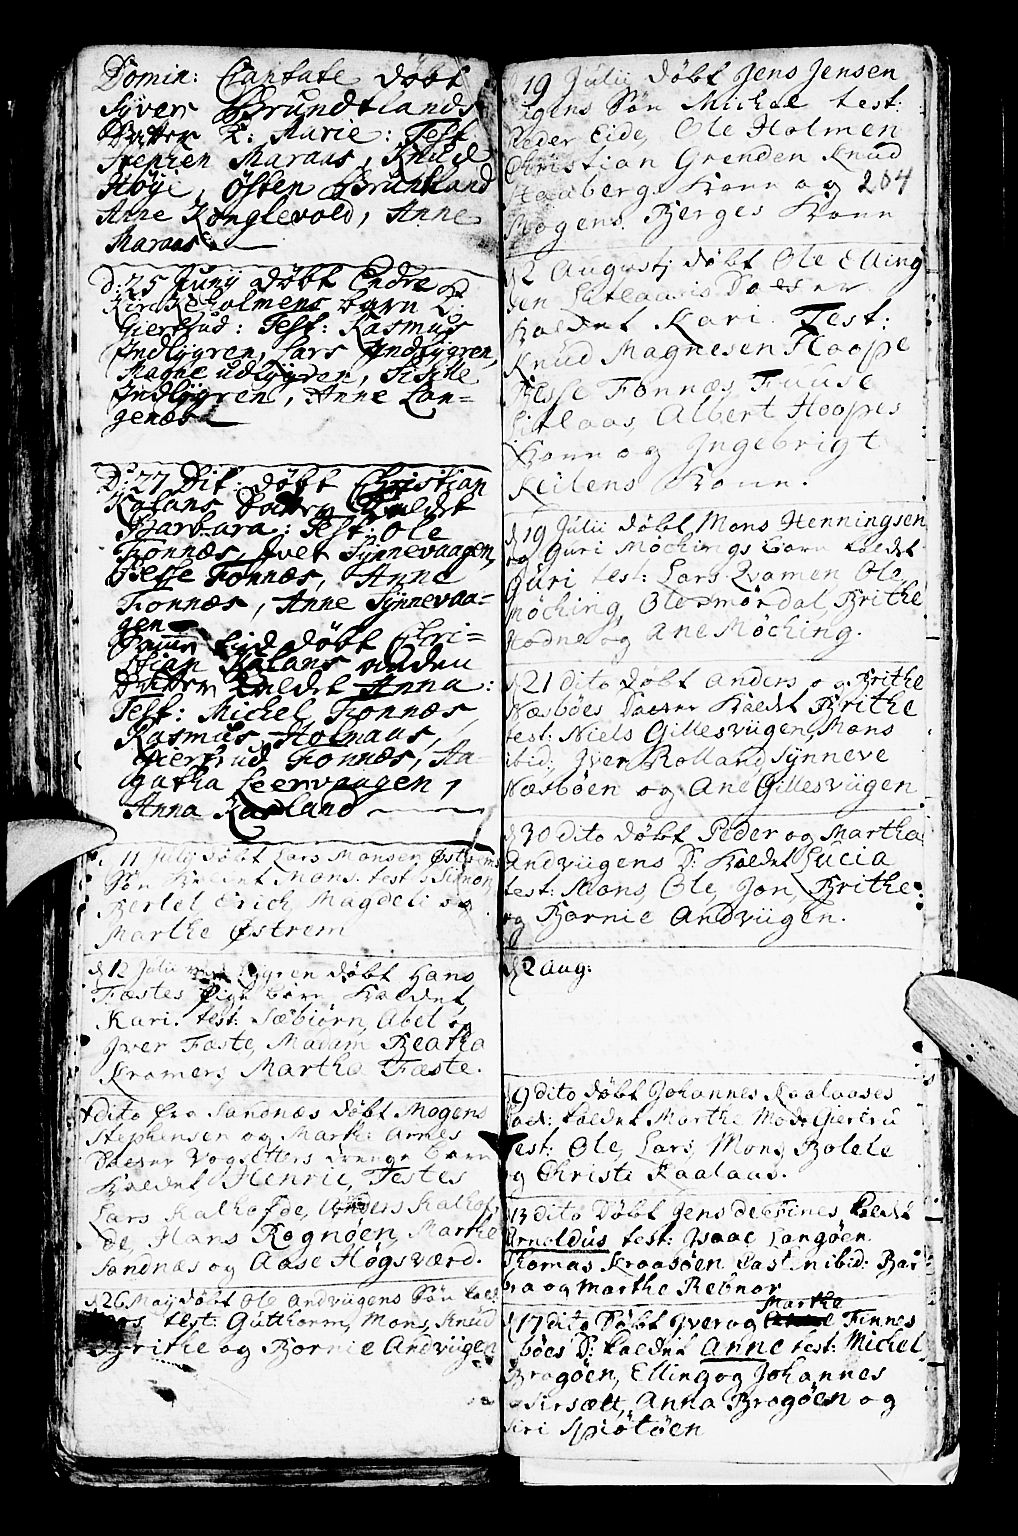 Domin: Cantate døbt
Syver Brundtlands
Datter K: Marie: Test
Stephen Maraas, Knud
Høye, Østen Bruntland
Ane Konglevold, Anne
Maraas
D: 25 Junij døbt Endre
Kirckeholmens barn K:
Giertrud: Test: Rasmus
Indlygren, Lars Indlygren,
Magne udlygren,
Indlygren, Anne Lan=
genæs
D: 27 Dit: døbt Christian
Kalans Datter Kaldet
Barbara: Test: Ole
Fonnæs, Iver Synnevaagen,
Besse Fonnæs, Anna
Fonnæs, Anne Synnevaa=
gen
Samme tid døbt Chri=
stian Kalans anden
Datter Kaldet Anna:
Test: Michel Fonnæs,
Rasmus Holmaas,
Giertrud Fonnæs, Aa=
gatha Leervaagen,
Anna Kaaland
11 July døbt Lars Monsen Østrems
Søn Kaldet Mons. test: Simon,
Bertel Erich, Magdeli og
Marthe Østrem
d 12 Julii døbt Hans
Fæstes barn Kaldet
Kari. test: Sæbiørn, Abel og
Iver Fæste, Madam Beatha
Kramers Martha Fæste.
dito fra Sandnæs døbt Mogens
Stephensen og Marth: Arnes
Daaer Vogsetters drenge barn
Kaldet Henric, Testes
Lars Kalhofde, Anders Kalhof,
de, Hans Rognøen, Marthe
Sandnæs og Aase Høgsværd.
d 26 Maij døbt Ole Andviigens Søn kald:
test: Gutthorm, Mons, Knud
Brithe og Bornie Andviigen
19 Julii døbt Jens Jensen
Søn Michal test:
Peder Eide, Ole Holmen
Christian Grenden Knud
Kone og 204
Mogens Berges Kone
d 2 Augustj døbt Ole Elling
sen Daater
Kaldet Kari. Test:
Knud Magnesen Hoope
Besse Fonnæs, Tuuse
Albert Hoopes
Kone og Ingebrigt
Keilens Kone.
d 19 Julii døbt Mons Henningsen
og Guri Møchings barn kaldet
Guri test: Lars Qvamen, Ole,
Møching, Ole Mørdal, Brithe
Hodne og Ane Møching.
d 21 dito døbt Anders og Brithe
Næsbøes Daater Kaldt Brithe
test: Niels Gillesviigen, Mons
ibid; Iver Rolland Synneve
Næsbøen og Ane Gillesviigen
d 30 dito døbt Peder og Martha
Andviigens D: Kaldet Lucia
test: Mons, Ole, Jon, Brithe
og Bornie Andviigen.
d 2 Aug:
d 9 dito døbt Johannes Kaalaases
kaldet Marthe Moder Giertru
Test: Ole, Lars, Mons, Bolele
og Christi Kaalaas.
d 13 dito Døbt Jens Finnes kaldt
Arnoldus test: Isaac Langøen
Thomas Kraasøen Casten ibid: Bar
bra og Marthe Rebnor
Marthe
d 17 dito Døbt Iver og Finnes
bøes D: kaldet Anne test: Michel
Bragøen, Elling og Johannes
Sirsætt, Anna Bragøen og
Siri Spiøtøen